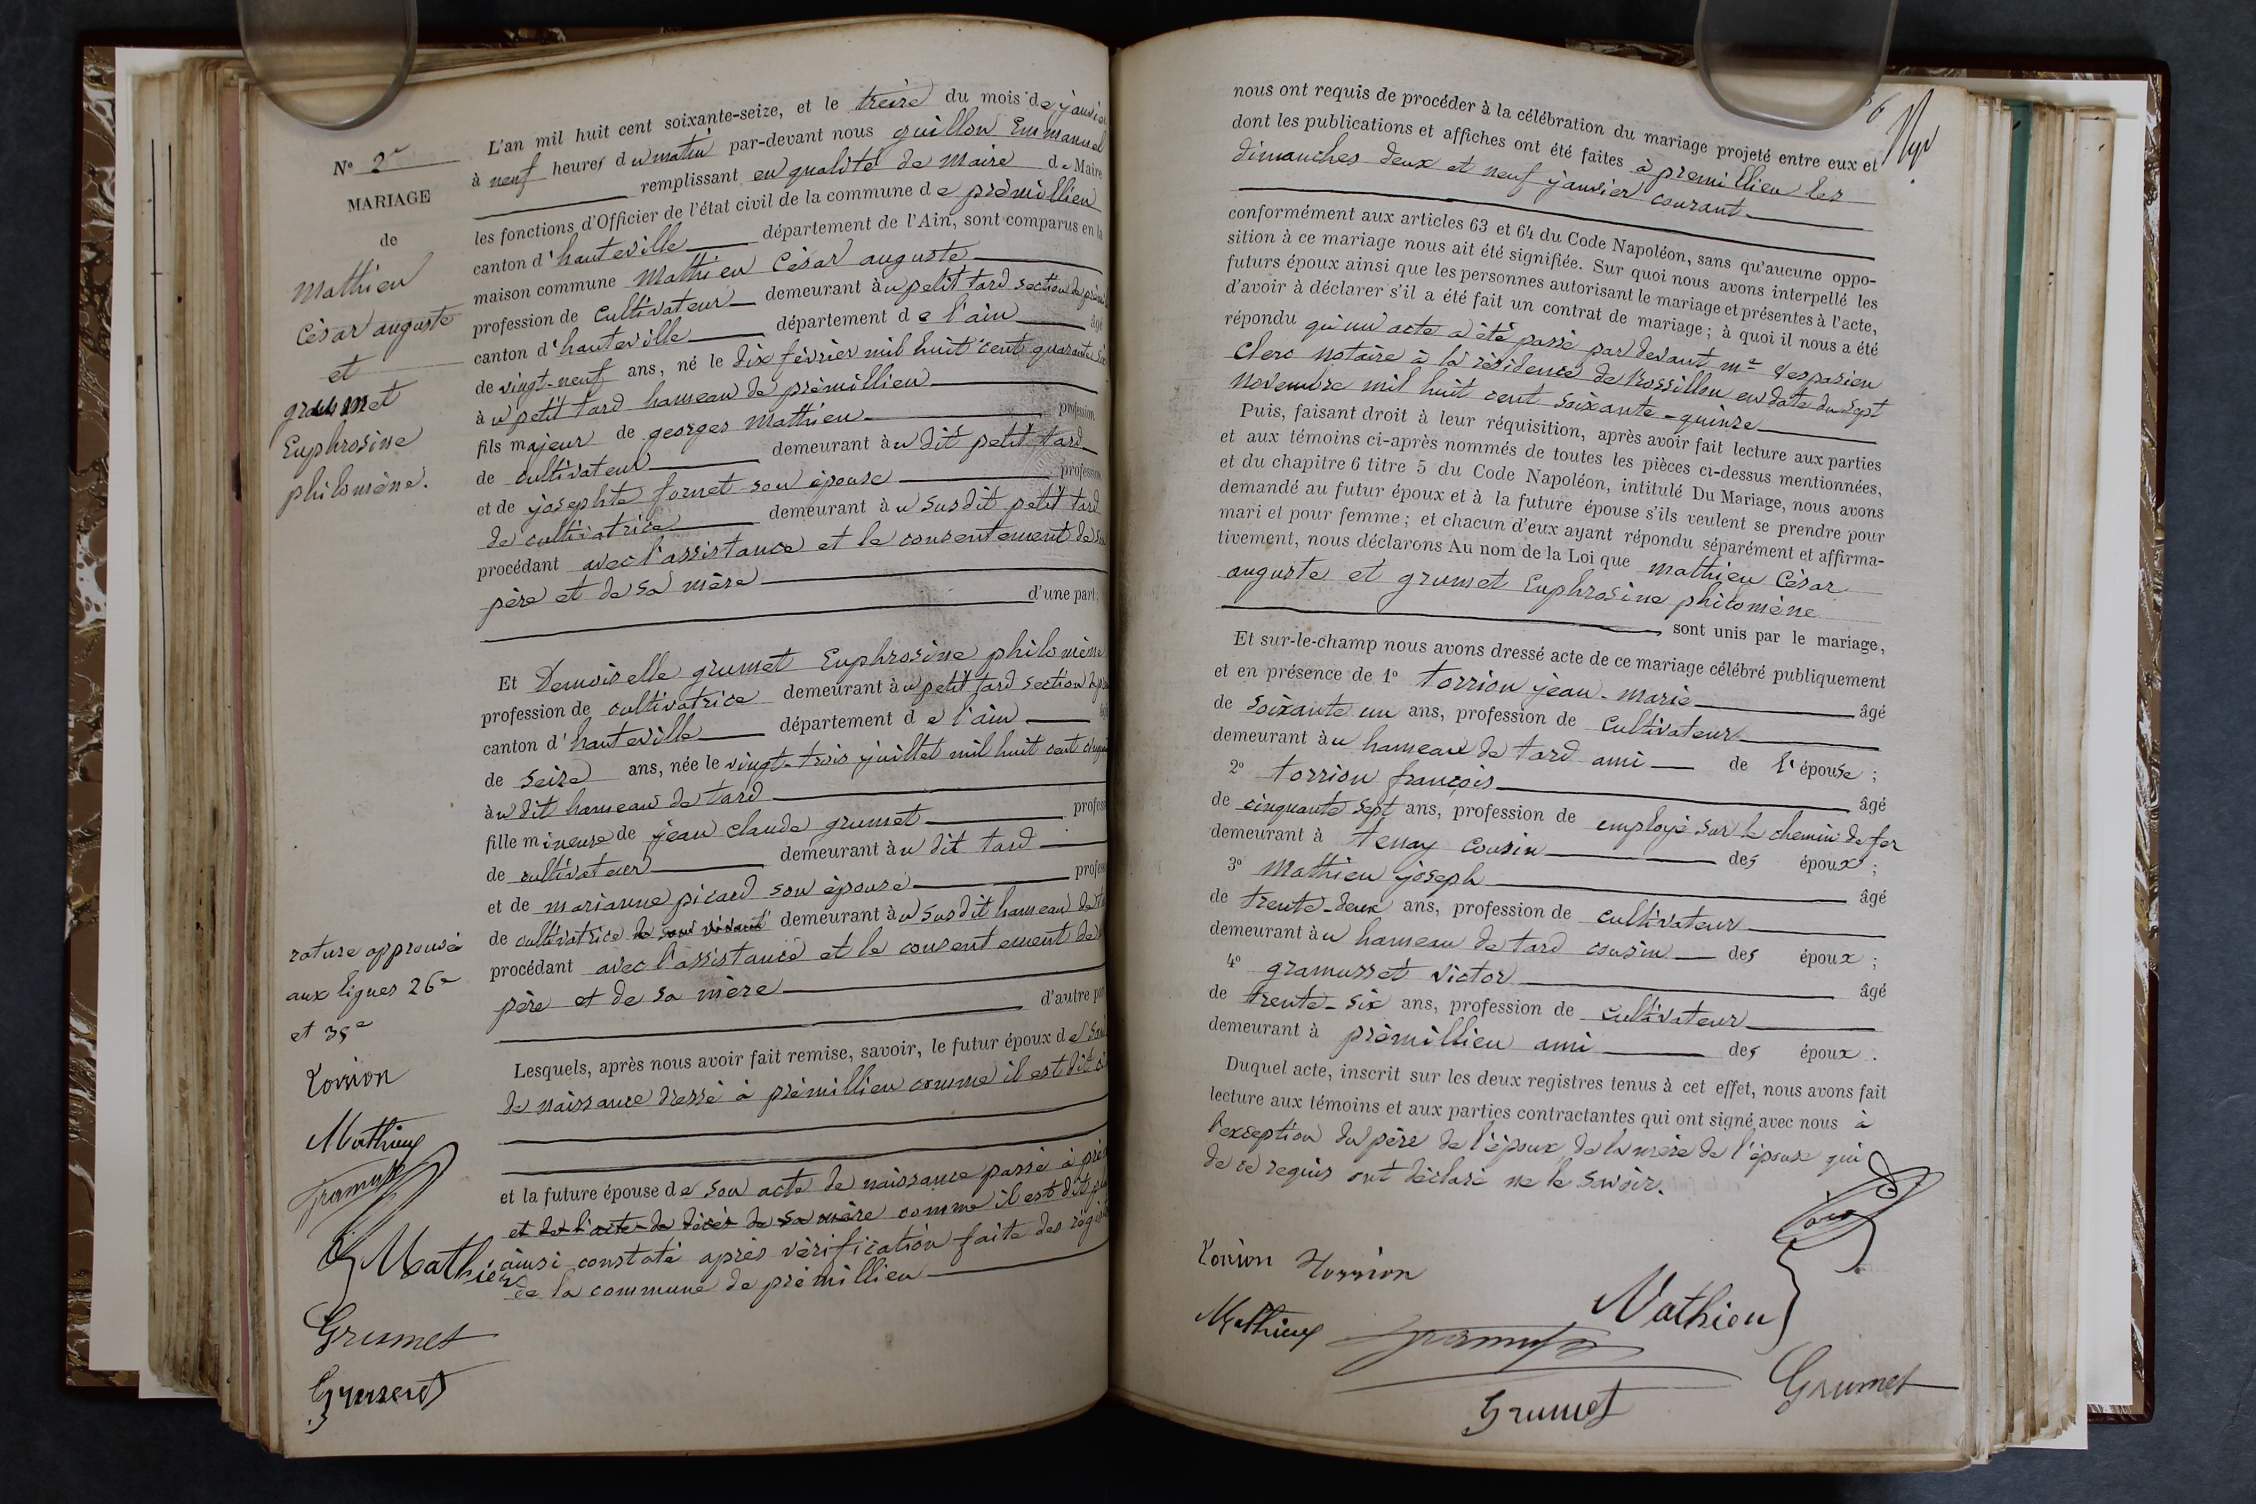 N° 2e
MARIAGE
de
Mathieu
César auguste
et
grummet
Euphrosine
philomène.
rature approuvée
aux lignes 26e
et 35e
Torrion
Mathieu
Mathieu
Grumet
Grumet
L'an mil huit cent soixante-seize, et le treize du mois de janvier
à neuf heures du matin par-devant nous guillon Emmanuel
remplissant en qualité de Maire de Maire
les fonctions d'Officier de l'état civil de la commune de prémillieu
canton d'hauteville département de l'Ain, sont comparus en la
maison commune Mathieu César auguste
profession de Cultivateur demeurant au petit tard section de
canton d'hauteville département de l'ain âgé
de vingt-neuf ans, né le dix février mil huit cent quarante six
au petit tard hameau de prémillieu
fils majeur de georges Mathieu profession
de cultivateur demeurant au dit petit tard
et de josephte fornet son épouse profession
de cultivatrice demeurant au susdit petit tard
procédant avec l'assistance et le consentement de son
père et de sa mère
d'une part;
Et Demoiselle grumet Euphrosine philomène
profession de cultivatrice demeurant au petit tard section de
canton d'hauteville département de l'ain
de seize ans, née le vingt-trois juillet mil huit cent
au dit hameau de tard
fille mineure de jean claude grumet profess
de cultivateur demeurant au dit tard
et de marianne picard son épouse profess
de cultivatrice de son vivant demeurant au susdit hameau de
procédant avec l'assistance et le consentement de
père et de sa mère
d'autre part
Lesquels, après nous avoir fait remise, savoir, le futur époux de son
de naissance dressé à prémillieu comme il est dit
et la future épouse de son acte de naissance passé à
et de l'acte de décès de sa mère comme il est dit
ainsi constaté après vérification faite des
de la commune de prémillieu
nous ont requis de procéder à la célébration du mariage projeté entre eux et
dont les publications et affiches ont été faites à premillieu les
dimanches deux et neuf janvier courant
conformément aux articles 63 et 64 du Code Napoléon, sans qu'aucune oppo-
sition à ce mariage nous ait été signifiée. Sur quoi nous avons interpellé les
futurs époux ainsi que les personnes autorisant le mariage et présentes à l'acte,
d'avoir à déclarer s'il a été fait un contrat de mariage; à quoi il nous a été
répondu qu'un acte a été passé par devant me Vespasien
Clerc notaire à la résidence de Rossillon en date du sept
novembre mil huit cent soixante-quinze
Puis, faisant droit à leur réquisition, après avoir fait lecture aux parties
et aux témoins ci-après nommés de toutes les pièces ci-dessus mentionnées,
et du chapitre 6 titre 5 du Code Napoléon, intitulé Du Mariage, nous avons
demandé au futur époux et à la future épouse s'ils veulent se prendre pour
mari et pour femme; et chacun d'eux ayant répondu séparément et affirma-
tivement, nous déclarons Au nom de la Loi que mathieu César
auguste et grumet Euphrosine philomène
sont unis par le mariage,
Et sur-le-champ nous avons dressé acte de ce mariage célébré publiquement
et en présence de 1° torrion jean-marie âgé
de soixante un ans, profession de Cultivateur
demeurant au hameau de tard ami de l'épouse;
2° torrion françois âgé
de cinquante sept ans, profession de employé sur le chemin de fer
demeurant à tenay cousin des époux;
3° Mathieu joseph âgé
de trente-deux ans, profession de cultivateur
demeurant au hameau de tard cousin des époux;
4° gramusset victor âgé
de trente-six ans, profession de cultivateur
demeurant à prémillieu ami des époux.
Duquel acte, inscrit sur les deux registres tenus à cet effet, nous avons fait
lecture aux témoins et aux parties contractantes qui ont signé avec nous à
l'exception du père de l'époux de la mère de l'épouse qui
de ce requis ont déclaré ne le savoir.
Torrion Torrion
Mathieu
Mathieu
Grumet
Grumet